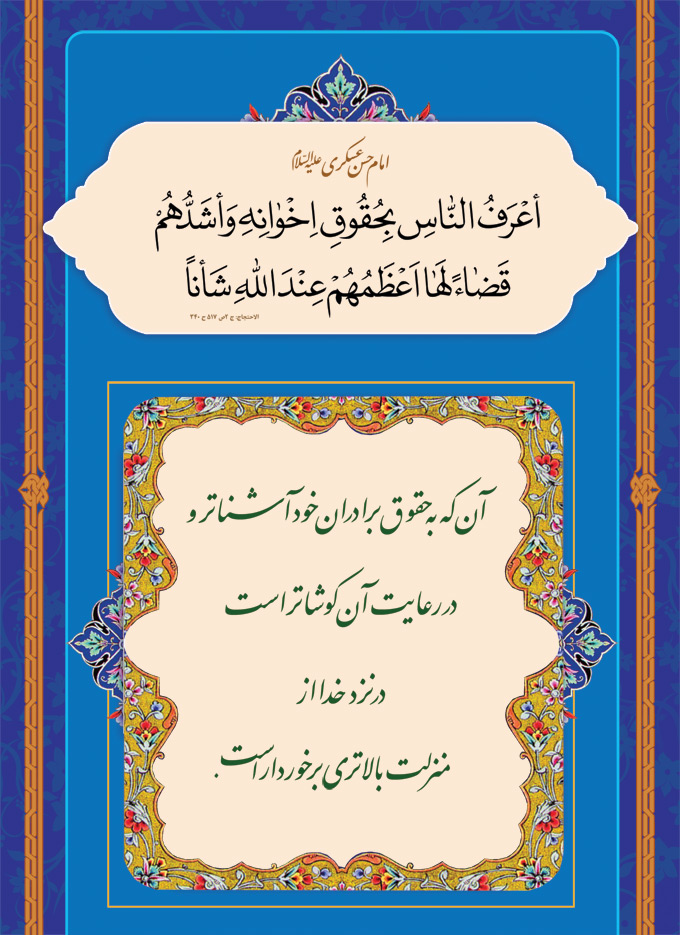 امام حسن عسکری علیه‌السلام
أعْرَفُ النّاسِ بِحُقُوقِ اِخْوٰانِهِ وَأشَدُّهُمْ
قَضٰاءً لَهٰا اَعْظَمُهُمْ عِنْدَ اللهِ شَأناً
الاحتجاج، ج ۲ص ۵۱۷ ح ۳۴۰
آن که به حقوق برادران خود آشناتر و
در رعایت آن کوشاتر است
در نزد خدا از
منزلت بالاتری برخوردار است.